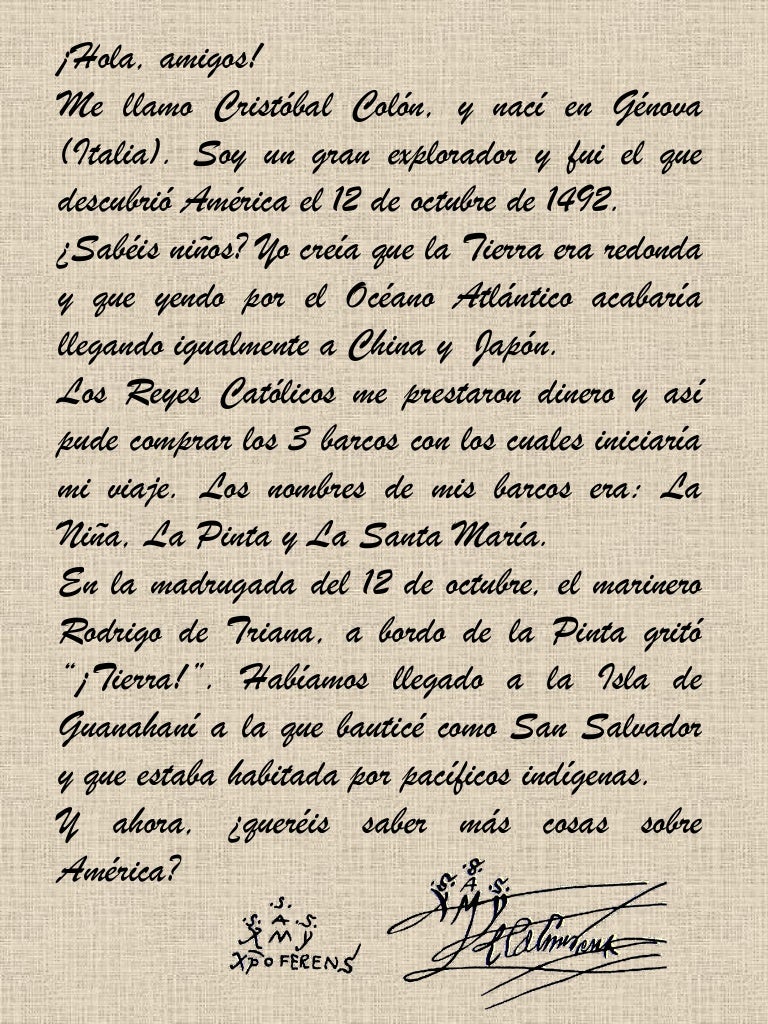 ¡Hola, amigos!
Me llamo Cristóbal Colón, y nací en Génova
(Italia). Soy un gran explorador y fui el que
descubrió América el 12 de octubre de 1492.
¿Sabéis niños? Yo creía que la Tierra era redonda
y que yendo por el Océano Atlántico acabaría
llegando igualmente a China y Japón.
Los Reyes Católicos me prestaron dinero y así
pude comprar los 3 barcos con los cuales iniciaría
mi viaje. Los nombres de mis barcos era: La
Niña, La Pinta y La Santa María.
En la madrugada del 12 de octubre, el marinero
Rodrigo de Triana, a bordo de la Pinta gritó
“¡Tierra!”. Habíamos llegado a la Isla de
Guanahaní a la que bauticé como San Salvador
y que estaba habitada por pacíficos indígenas.
Y ahora, ¿queréis saber más cosas sobre
América?
.S.
.S. A .S.
X M Y
XPO FERENS
.S.
.S. A .S.
X M Y